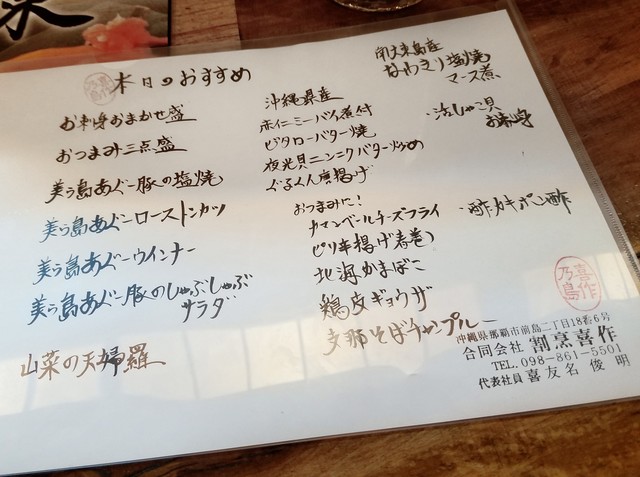 本日のおすすめ
お刺身おまかせ盛
おつまみ三点盛
美ら島あぐー豚の塩焼
美ら島あぐーローストンカツ
美ら島あぐーウインナー
美ら島あぐー豚のしゃぶしゃぶ
サラダ
山菜の天婦羅
沖縄県産
赤仁ミーバイ煮付
ビタローバター焼
夜光貝ニンニクバター炒め
ぐるくん唐揚げ
おつまみに!
カマンベールチーズフライ
ピリ辛揚げ春巻
北海かまぼこ
鶏皮ギョウザ
支那そばチャンプルー
南大東島産
なわきり塩焼
マース煮
・活しゃこ貝
お刺身
・酢カキポン酢
喜作
乃島
沖縄県那覇市前島二丁目18番6号
合同会社 割烹喜作
TEL.098-861-5501
代表社員 喜友名 俊明